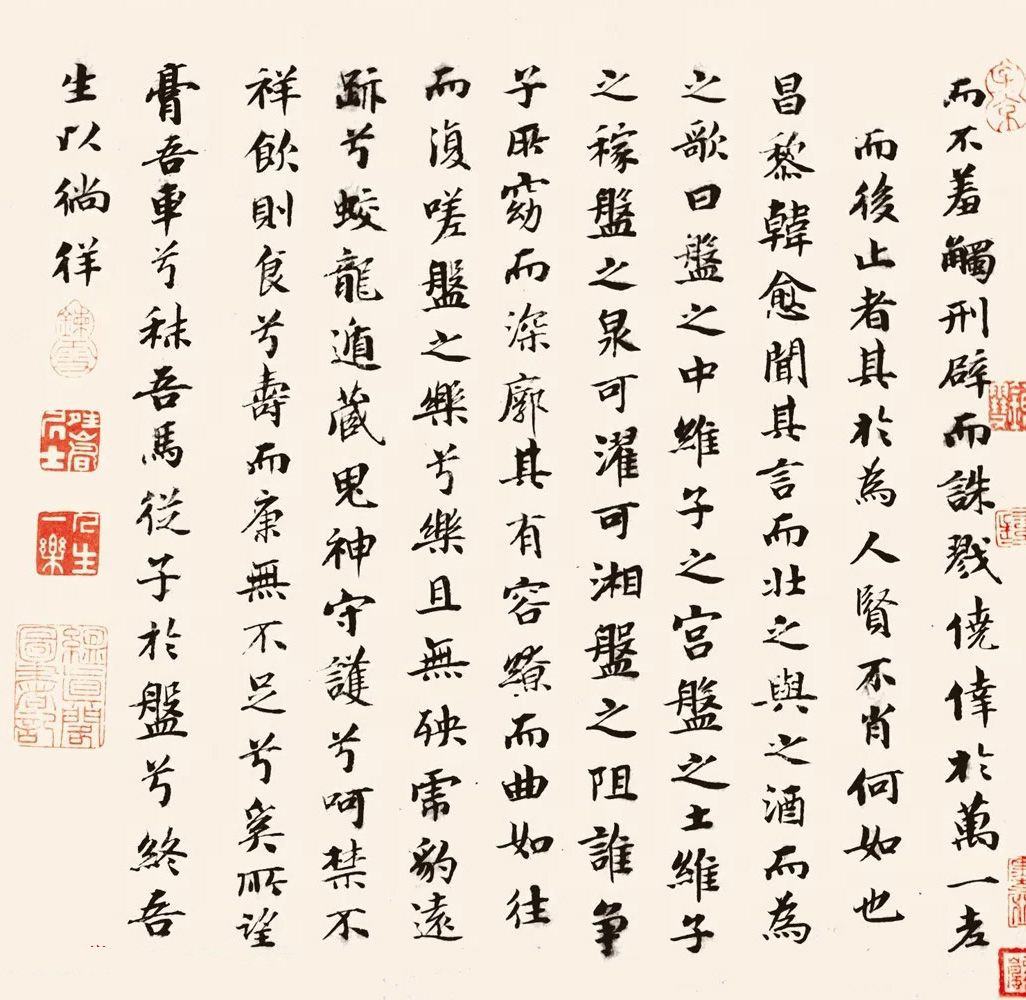 而不羞觸刑辟而誅戮僥倖於萬一老
而後止者其於為人賢不肖何如也
昌黎韓愈聞其言而壯之與之酒而為
之歌曰盤之中維子之宮盤之土維子
之稼盤之泉可濯可湘盤之阻誰爭
子所窈而深廓其有容繚而曲如往
而復嗟盤之樂兮樂且無殃虎豹遠
跡兮蛟龍遁藏鬼神守護兮呵禁不
祥飲則食兮壽而康無不足兮奚所望
膏吾車兮秣吾馬從子於盤兮終吾
生以徜徉
人生一樂